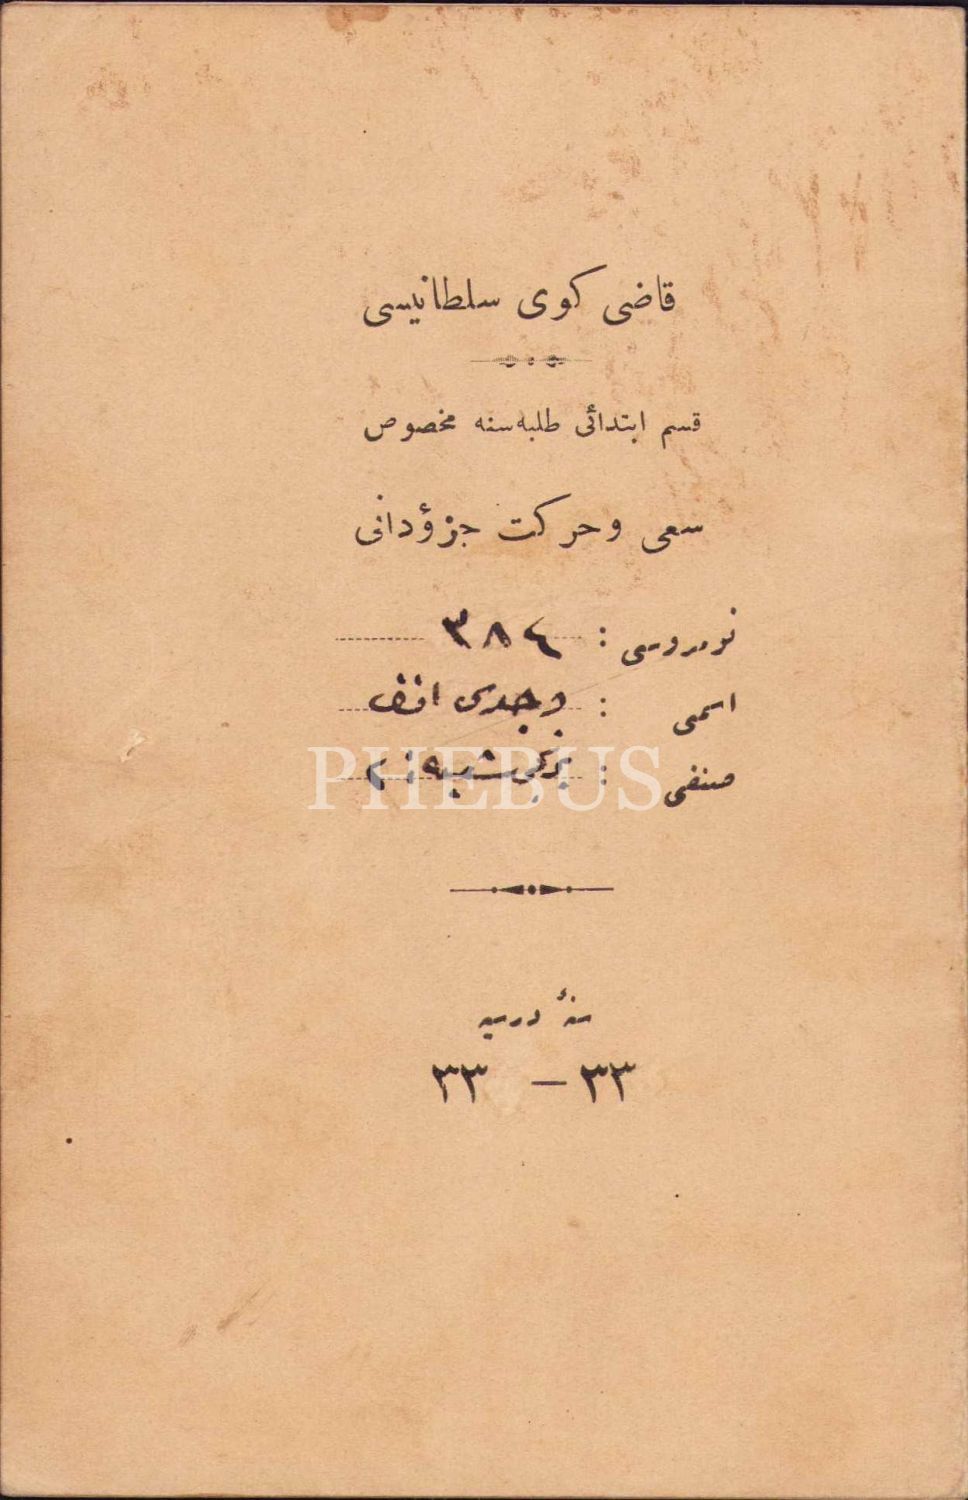 قاضی کوی سلطانیسی
قسم ابتدائی طلبه‌سنه مخصوص
سعی و حرکت جزؤدانی
نومروسی : ٣٨٤
اسمی : وجدی افندی
صنفی : شعبه : ٢
PHEBUS
سنۀ درسیه
٣٣ — ٣٣